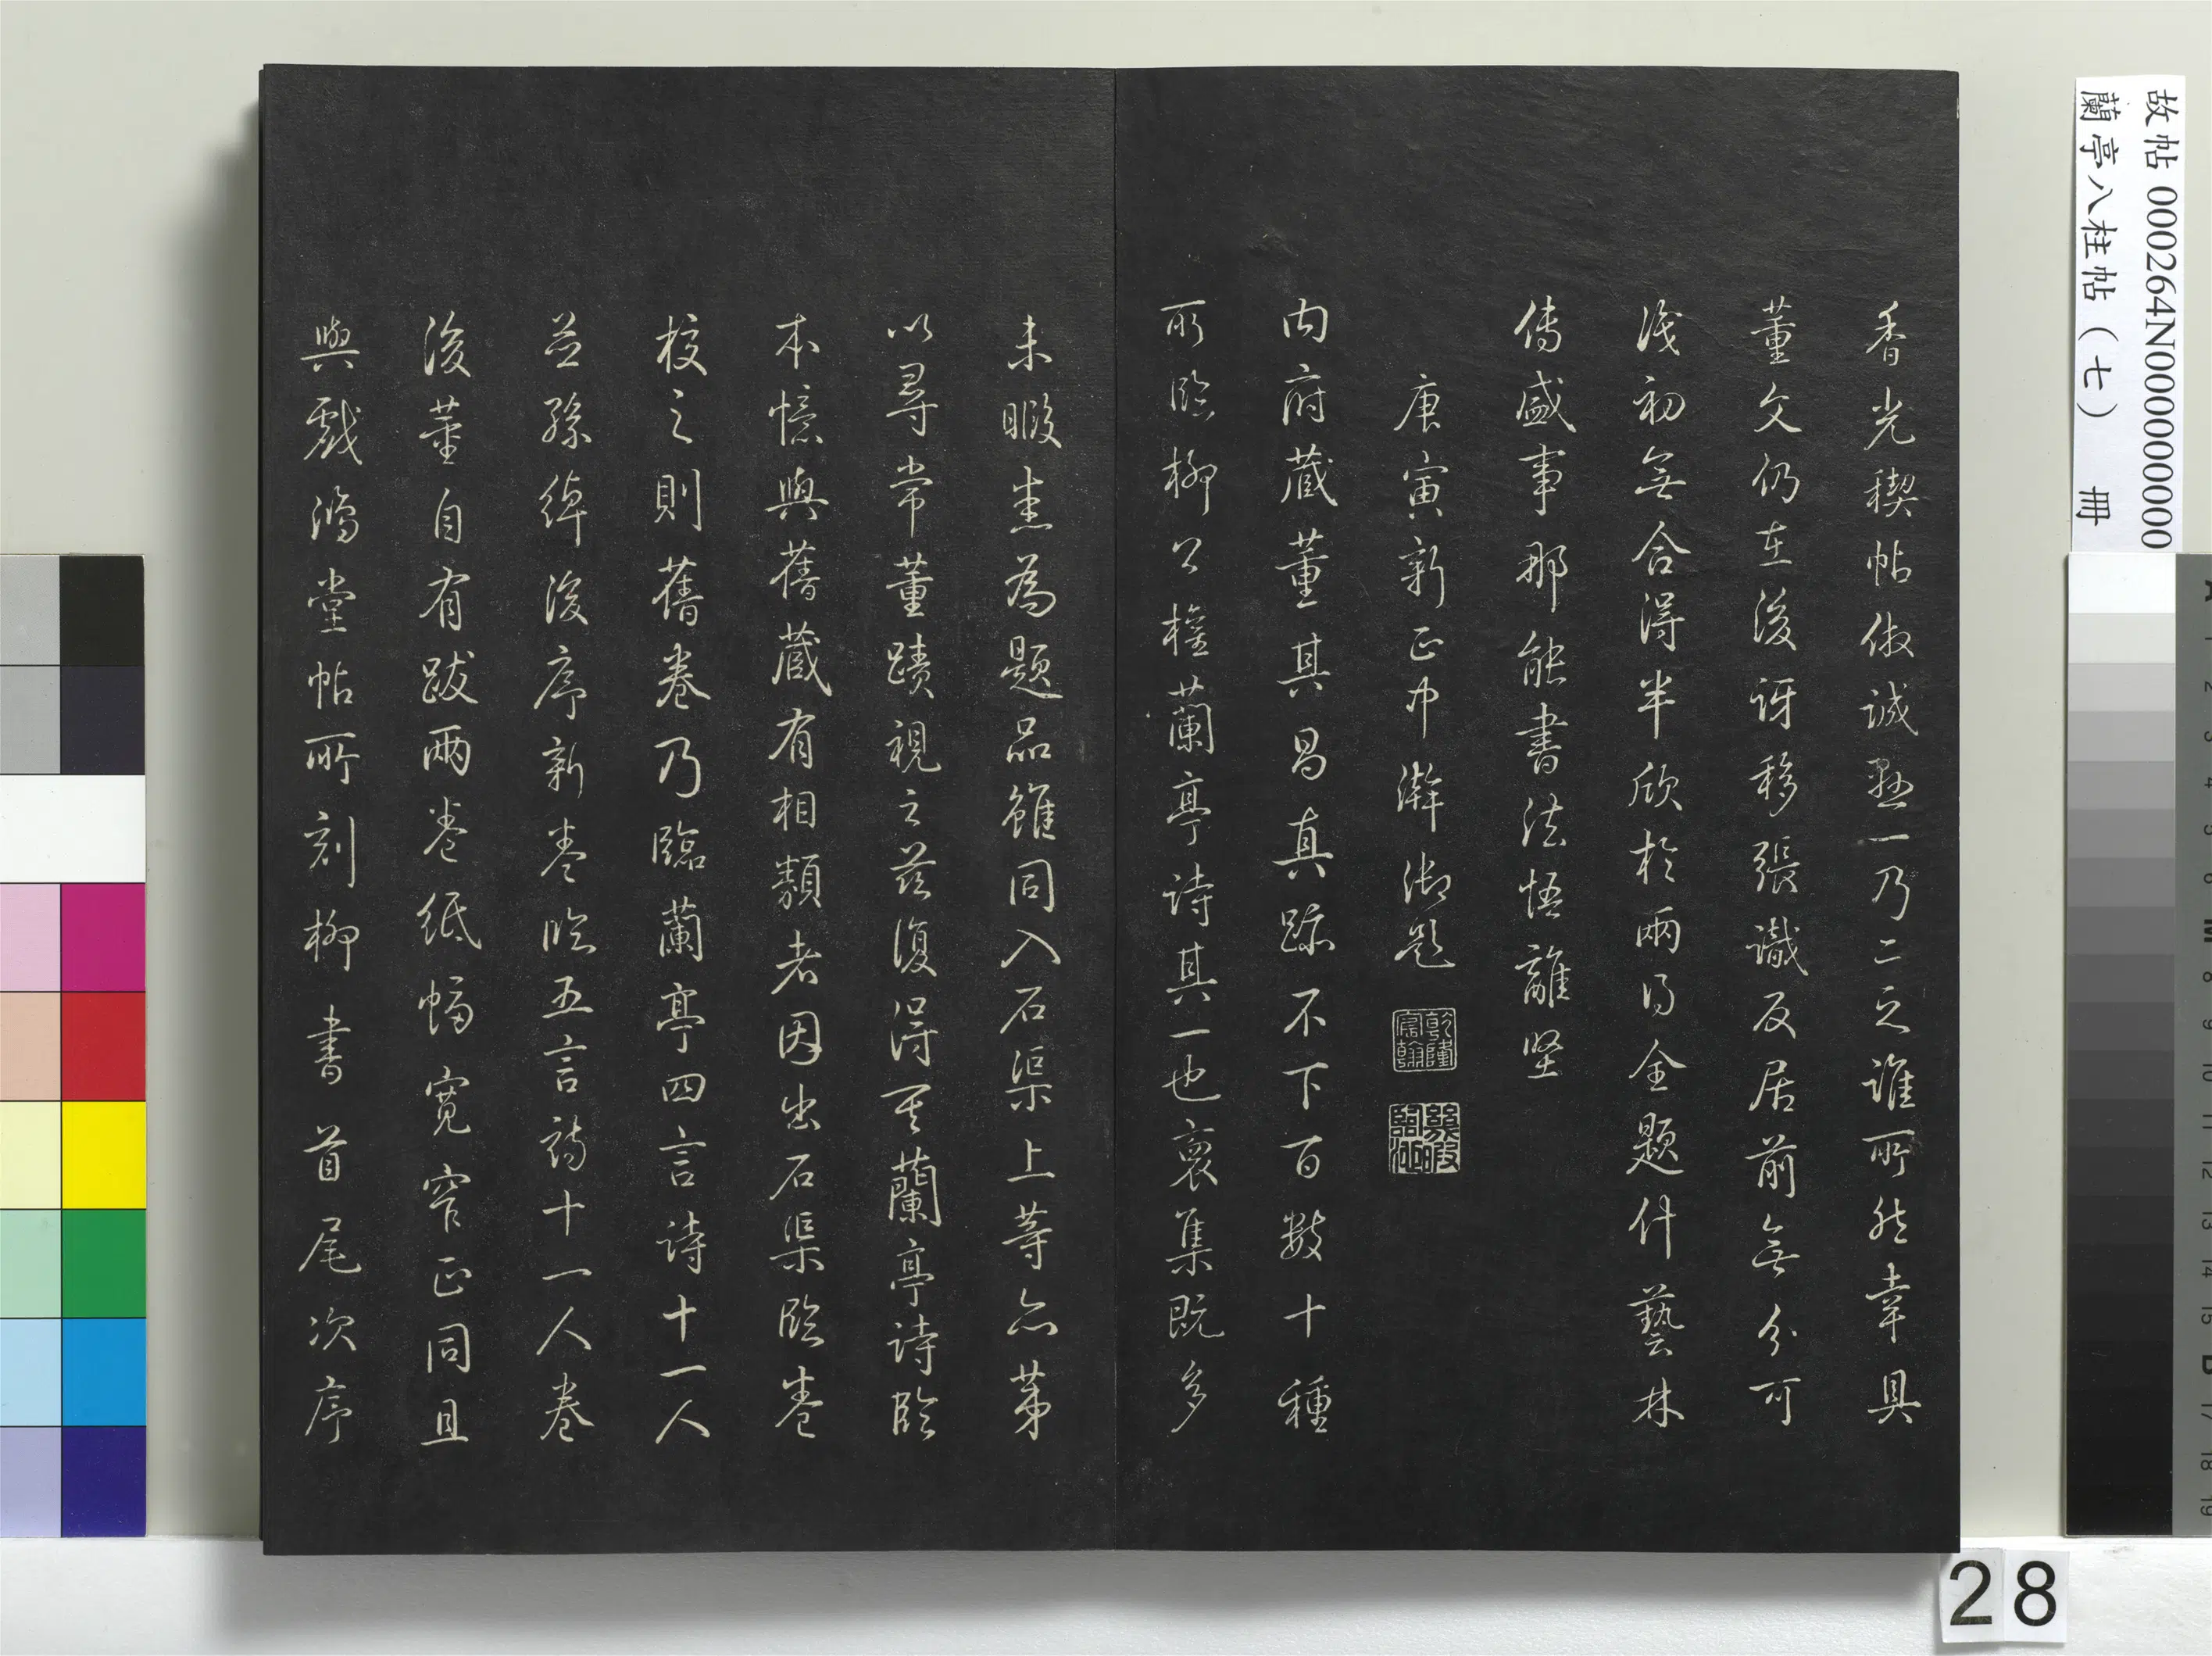 香光稧帖倣誠懸一乃二之誰所然幸具
董文仍在後訝移張識反居前無分可
淺初無合得半欣於兩得全題什藝林
傳盛事那能書法悟離堅
庚寅新正中澣御題
乾隆宸翰
幾暇臨池
內府藏董其昌真跡不下百數十種
所臨柳公權蘭亭詩其一也裒集既多
未暇悉為題品雖同入石渠上等亦第
以尋常董蹟視之茲復得其蘭亭詩臨
本憶與舊藏有相類者因出石渠臨卷
校之則舊卷乃臨蘭亭四言詩十一人
並孫綽後序新卷臨五言詩十一人卷
後董自有跋兩卷紙幅寬窄正同且
與戲鴻堂帖所刻柳書首尾次序
故帖 000264N000000000
蘭亭八柱帖(七) 冊
28